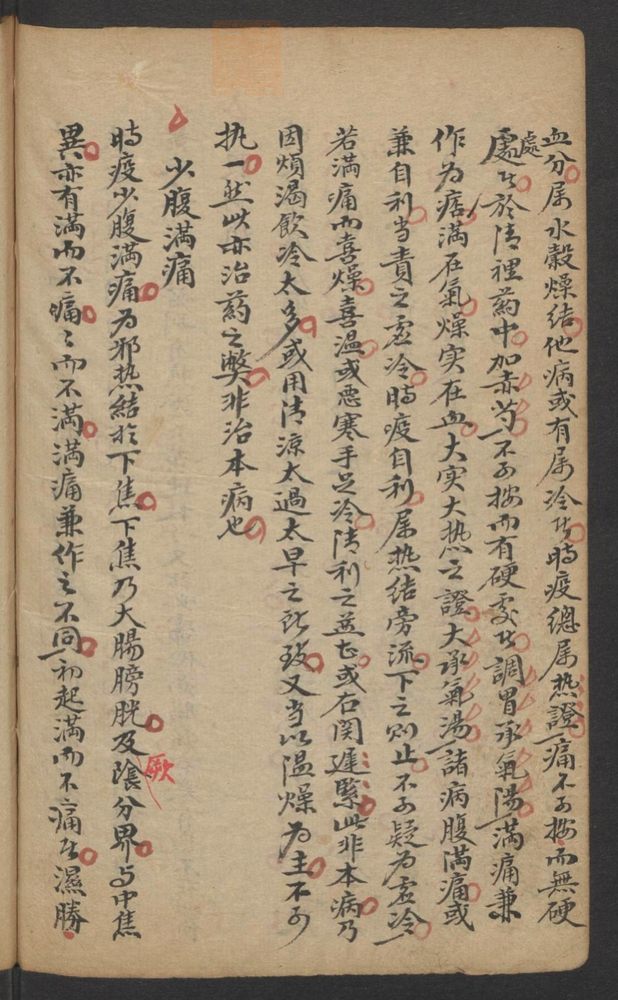 血分属水穀燥結他病或有属冷者時疫總属热證一痛不可按而無硬
處者於清裡药中加赤芍一不可按而有硬處者調胃承氣湯满痛兼
處
作為痞滿在氣燥实在血大实大热之證大承氣湯一諸病腹满痛或
兼自利当責之虚冷時疫自利属热結旁流下之则止不可疑为虚冷
若满痛而喜燥喜温或悪寒手足冷清利之益甚或右関遲緊此非本病乃
因煩渴飲冷太多或用清凉太過太早之所致又当以温燥为主不可
执一然此亦治药之弊非治本病也
少腹满痛
時疫少腹满痛为邪热結於下焦下焦乃大腸膀胱及厥陰分界与中焦
異亦有满而不痛〻而不满满痛兼作之不同一初起满而不痛者濕勝